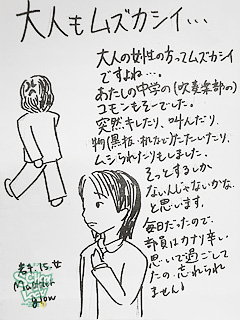 大人もムズカシイ…
大人の女性の方ってムズカシイ
ですよね…。
あたしの中学の(吹奏楽部の)
コモンもそーでした。
突然キレたり、叫んだり、
物(黒板・机など)たたいたり、
ムシられたりもしました。
そっとするしか
ないんじゃないかな、
と思います。
毎日だったので、
部員はカナリ辛い
思いで過ごして
たの、忘れられ
ません。
15.女
glow